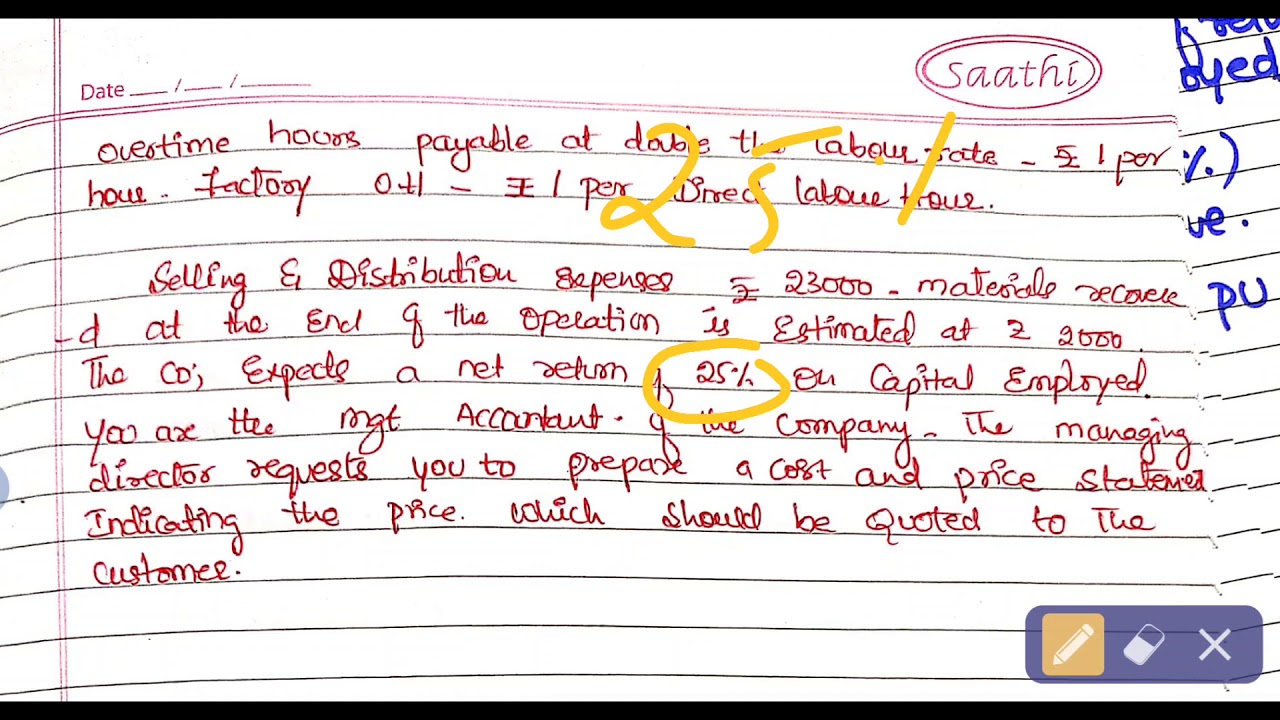 Saathi
Date __/__/____
overtime hours payable at double the labour rate - ₹ 1 per
hour. factory OH - ₹ 1 per Direct labour Hour.
25%
Selling & Distribution expenses ₹ 23000 - materials recovere
-d at the End of the operation is Estimated at ₹ 2000.
The Co; Expects a net return of 25% on Capital Employed.
You are the mgt Accountant. of the Company. The managing
director requests you to prepare a cost and price statement
Indicating the price. which should be Quoted to The
customer.
oyed
%.)
ve.
PU